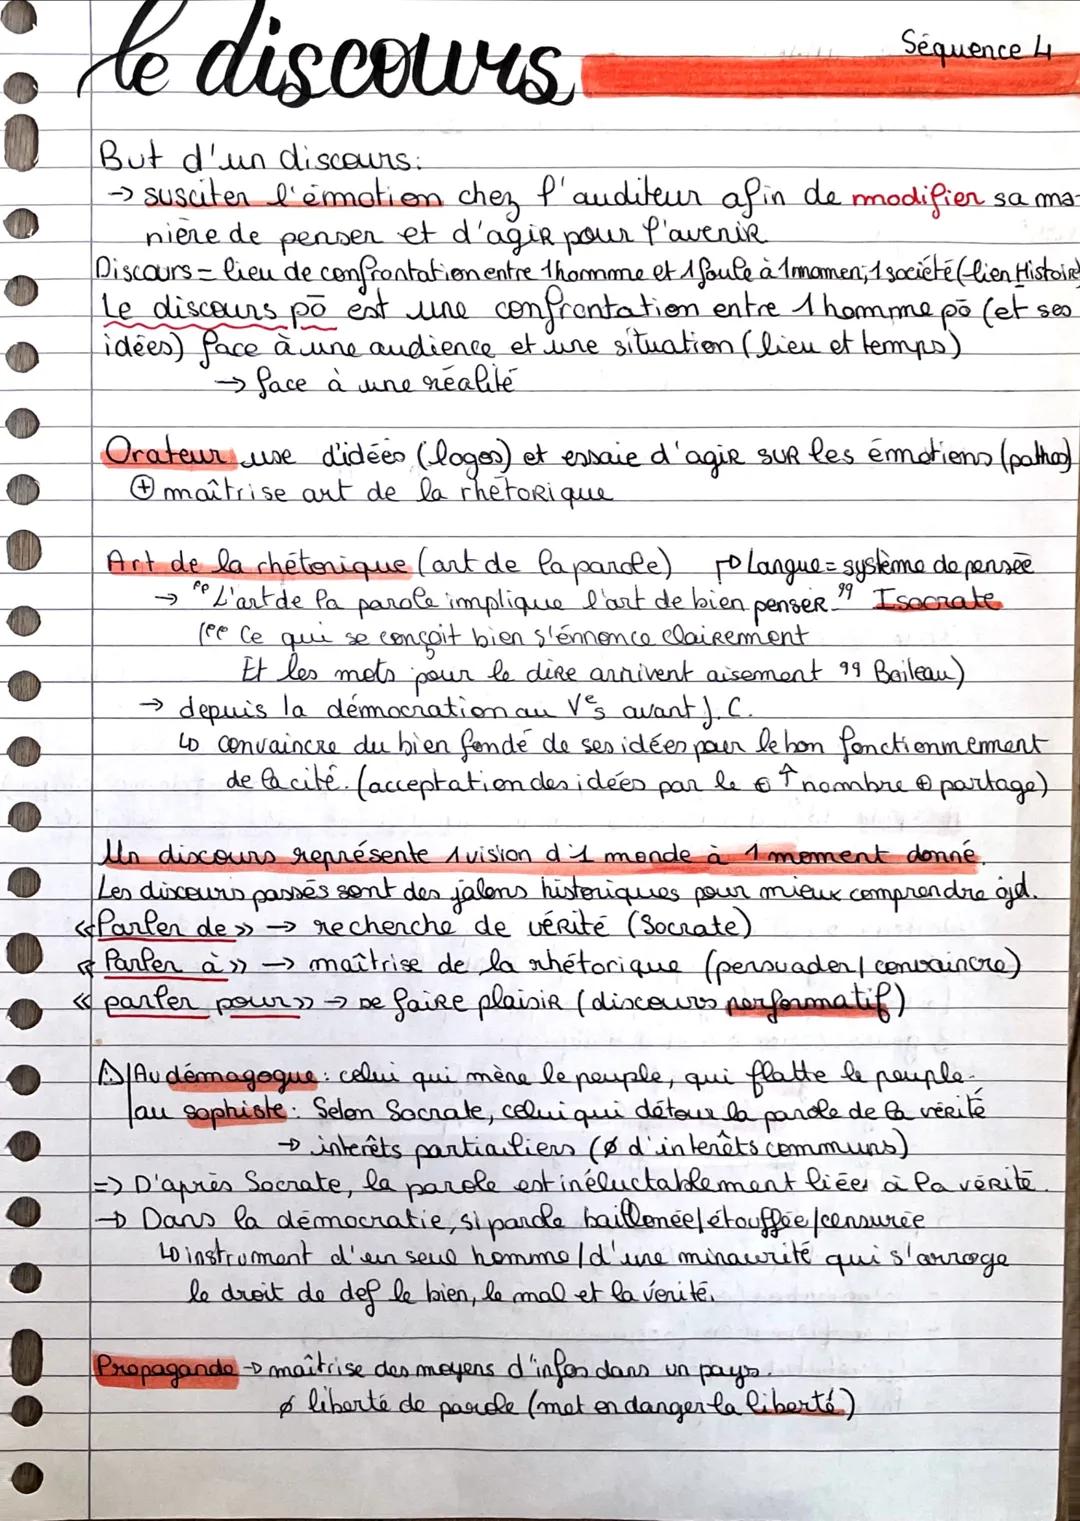 le discours
Séquence 4
But d'un discours:
→ susciter l'émotion chez l'auditeur afin de modifier sa ma-
nière de penser et d'agir pour l'avenir
Discours = lieu de confrontation entre 1 homme et 1 foule à 1 momen; 1 société (-lien Histoire)
Le discours pō est une confrontation entre 1 homme pō (et ses
idées) face à une audience et une situation (lieu et temps)
→ face à une réalité
Orateur use d'idées (logos) et essaie d'agir sur les émotions (pathos)
⊕ maîtrise art de la rhétorique
Art de la rhétorique (art de la parole) → Langue = système de pensée
→ "L'art de la parole implique l'art de bien penser" Isocrate
("Ce qui se conçoit bien s'énnonce clairement
Et les mots pour le dire arrivent aisement" Boileau)
→ depuis la démocration au Ve s avant J.C.
↳ convaincre du bien fondé de ses idées pour le bon fonctionnement
de la cité. (acceptation des idées par le ⊕ ↑ nombre ⊕ partage)
Un discours représente 1 vision d'1 monde à 1 moment donné.
Les discours passés sont des jalons historiques pour mieux comprendre ajd.
«Parler de» → recherche de vérité (Socrate)
«Parler à» → maîtrise de la rhétorique (persuader/convaincre)
«parler pour» → se faire plaisir (discours performatif)
⚠ Au démagogue: celui qui mène le peuple, qui flatte le peuple.
au sophiste: Selon Socrate, celui qui détour la parole de la vérité
→ interêts particuliers (∅ d'interêts communs)
=> D'après Socrate, la parole est inéluctablement liées à la vérité.
→ Dans la démocratie, si parole baillonée/étouffée/censurée
↳ instrument d'un seul homme/d'une minaurité qui s'arroge
le droit de def le bien, le mal et la vérité.
Propagande → maîtrise des moyens d'infos dans un pays.
∅ liberté de parole (met en danger la liberté)